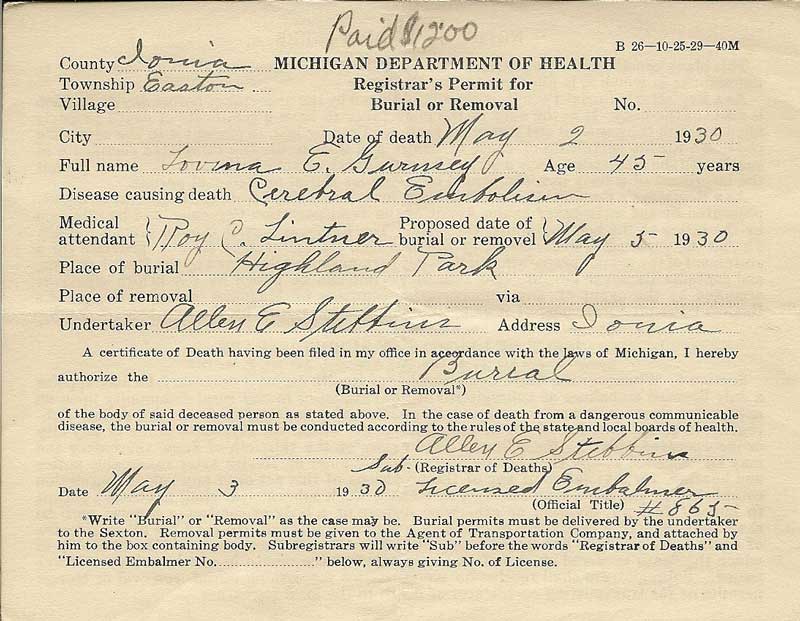 Paid $12.00
B 26—10-25-29—40M
County Ionia MICHIGAN DEPARTMENT OF HEALTH
Township Easton Registrar's Permit for
Village Burial or Removal No.
City Date of death May 2 1930
Full name Lovina E. Gurnsey Age 45 years
Disease causing death Cerebral Embolism
Medical attendant Roy C. Lintner Proposed date of burial or removel May 5 1930
Place of burial Highland Park
Place of removal via
Undertaker Allen E Stebbins Address Ionia
A certificate of Death having been filed in my office in accordance with the laws of Michigan, I hereby
authorize the Burial
(Burial or Removal*)
of the body of said deceased person as stated above. In the case of death from a dangerous communicable
disease, the burial or removal must be conducted according to the rules of the state and local boards of health.
Allen E Stebbins
Sub- (Registrar of Deaths)
Date May 3 1930 Licensed Embalmer
(Official Title) #865-
*Write "Burial" or "Removal" as the case may be. Burial permits must be delivered by the undertaker
to the Sexton. Removal permits must be given to the Agent of Transportation Company, and attached by
him to the box containing body. Subregistrars will write "Sub" before the words "Registrar of Deaths" and
"Licensed Embalmer No. .................." below, always giving No. of License.